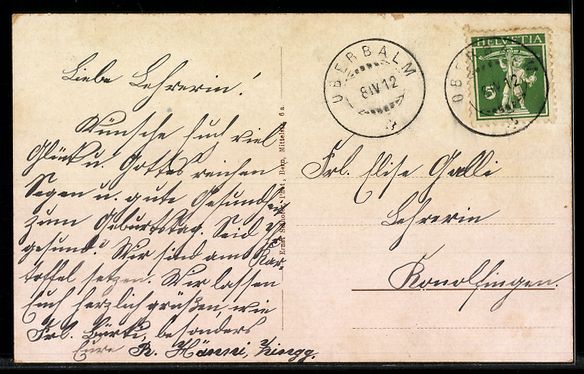 Liebe Lehrerin!
Wünsche Euch viel
Glück u. Gottes reichen
Segen u. gute Gesundheit
zum Geburtstag. Seid Ihr
gesund? Wir sind am Kar
toffel setzen. Wir lassen
Euch herzlich grüßen, wie
Frl. Bürki, besonders
Eure R. Hänni, Zingg.
Bern, Mittelstr. 6a.
OBERBALM
8 IV 12
HELVETIA
5
OBER
12
Frl. Elise Galli
Lehrerin
Konolfingen.